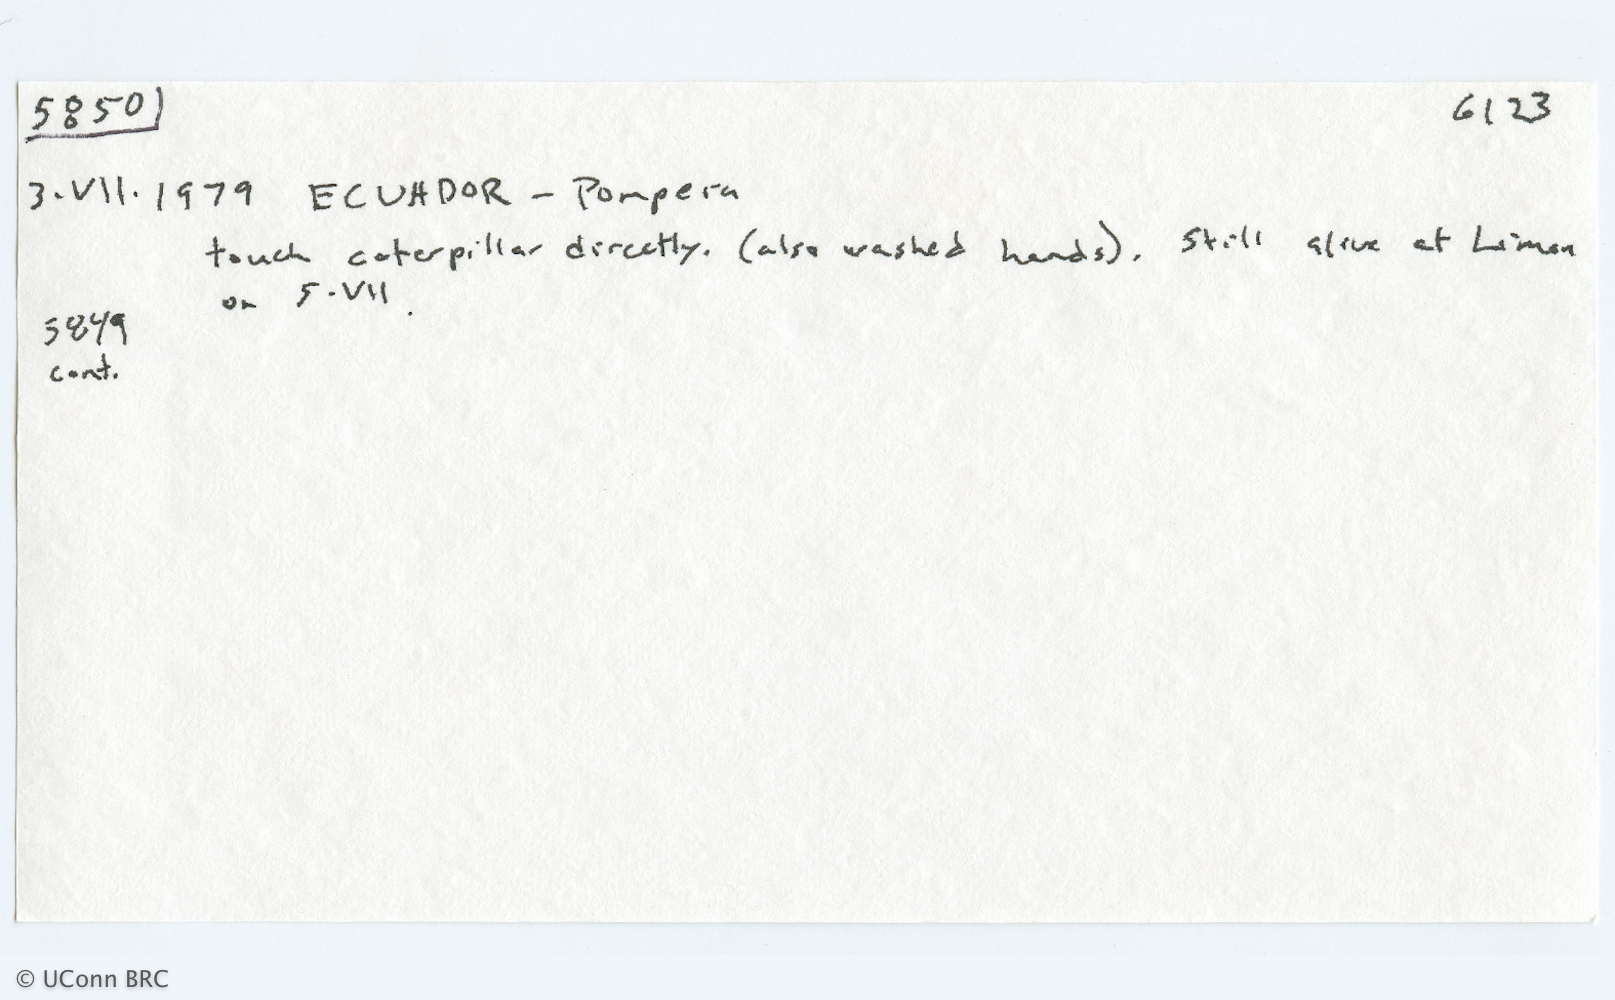 5850 6123
3.VII.1979 ECUADOR - Pompeya
touch caterpillar directly. (also washed hands). Still alive at Limon
on 5.VII.
5849
cont.
© UConn BRC